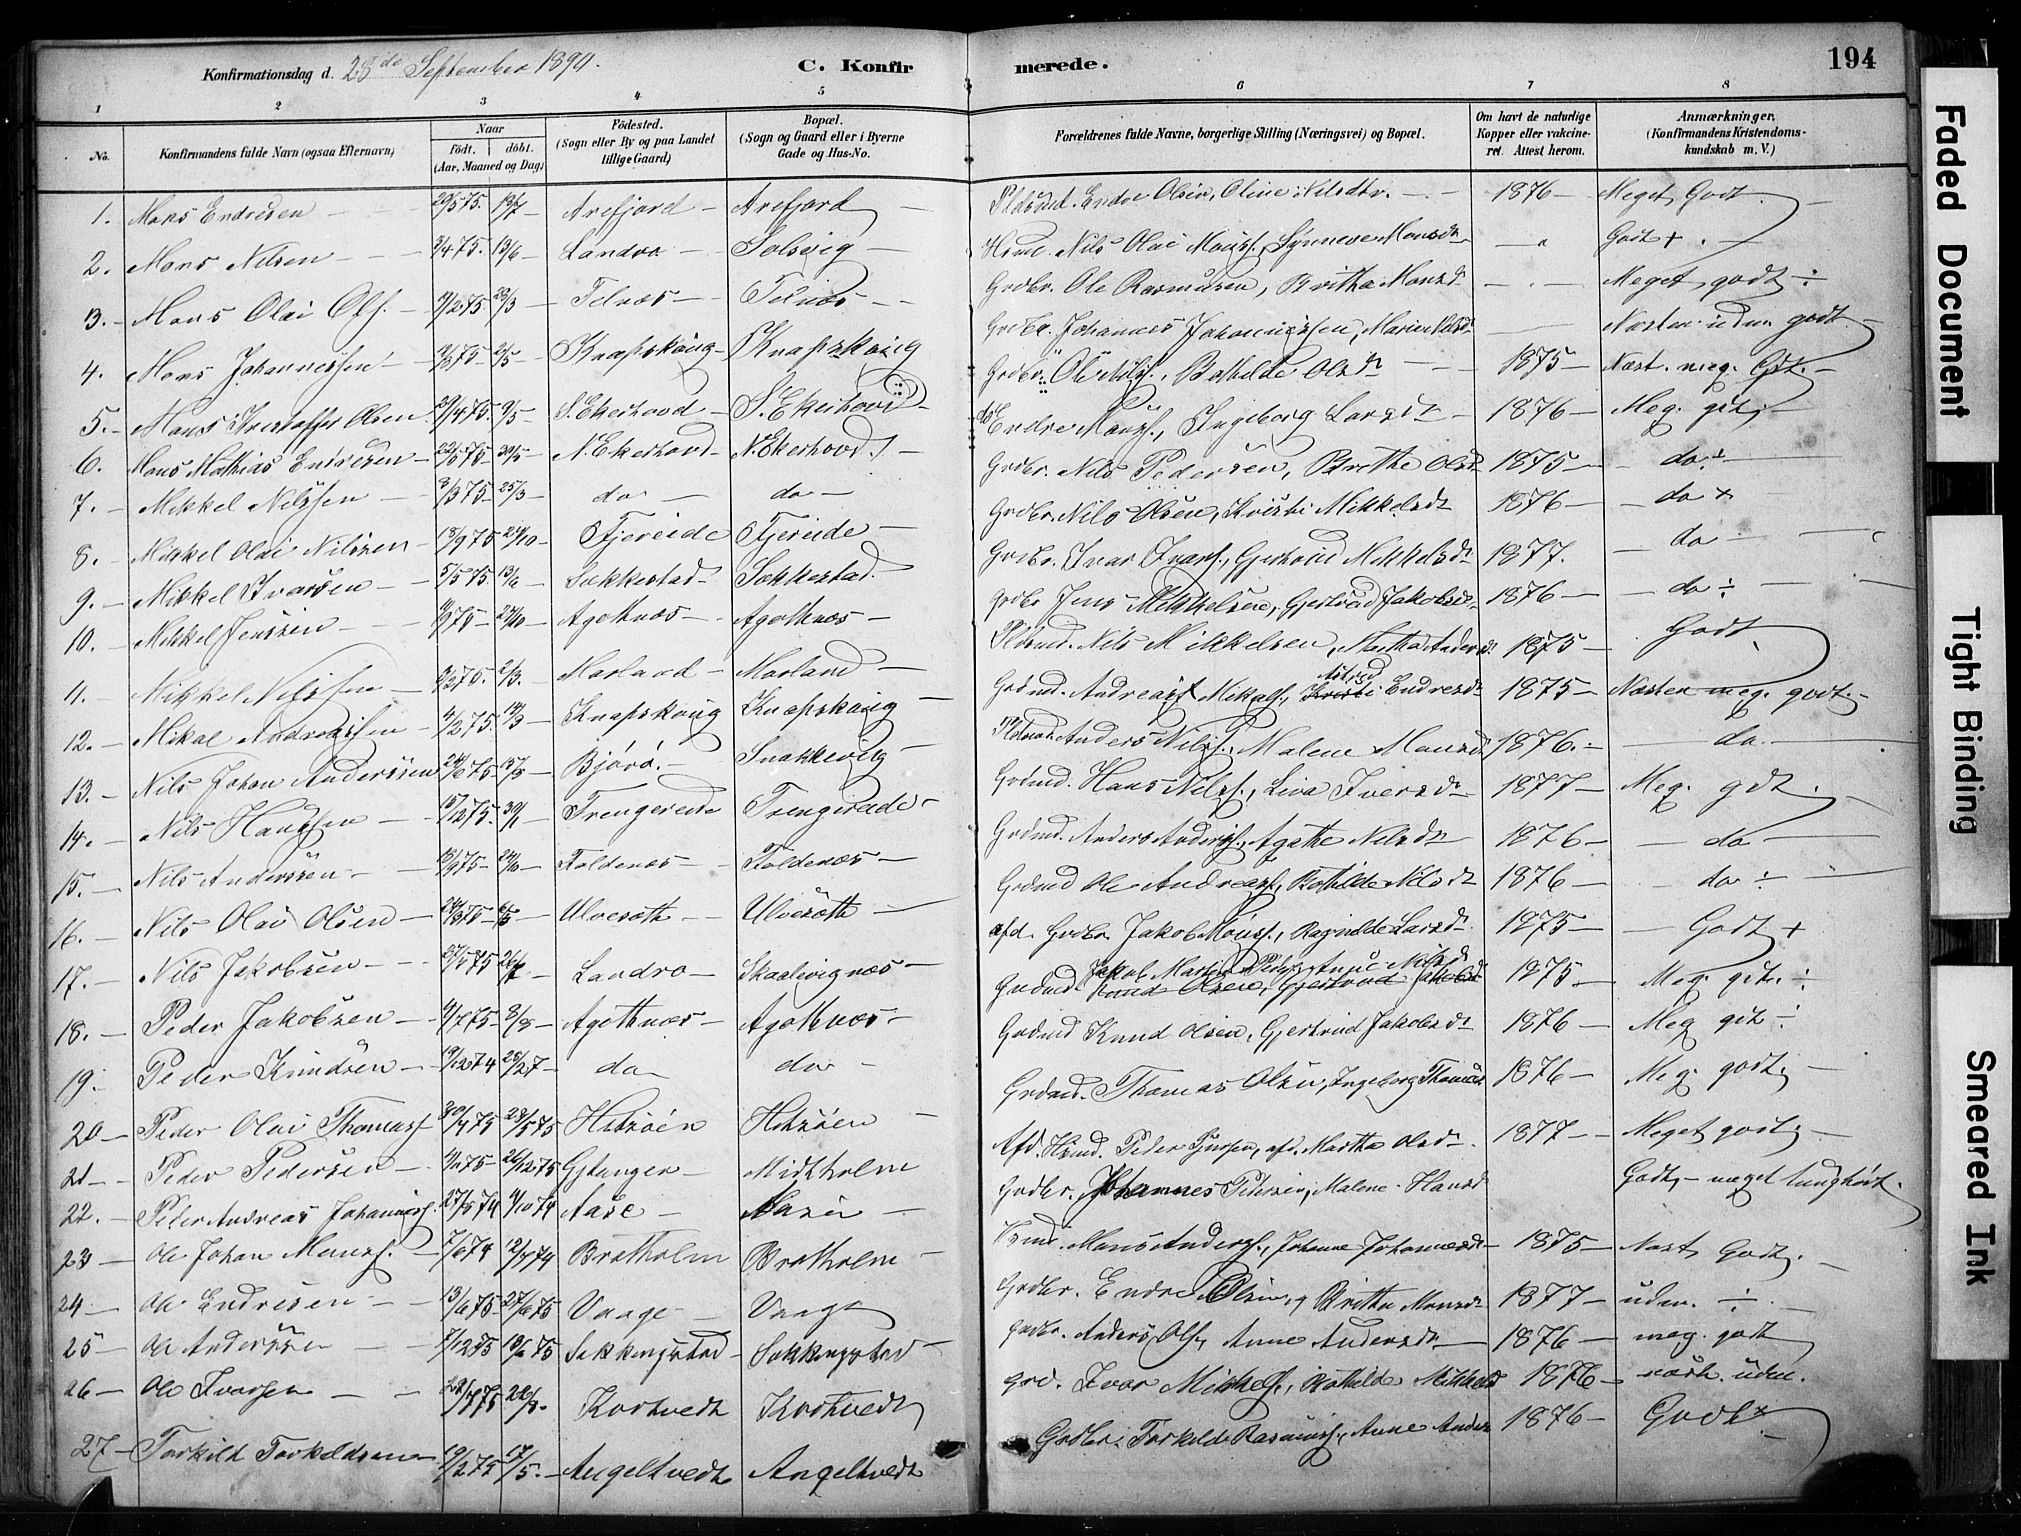 Konfirmationsdag d. 28de September 1890. C. Konfirmerede. 194
1 2 3 4 5 6 7 8
No. Konfirmandens fulde Navn (ogsaa Efternavn) Naar født. døbt. (Aar, Maaned og Dag) Fødested. (Sogn eller By og paa Landet tillige Gaard) Bopæl. (Sogn og Gaard eller i Byerne Gade og Hus-No. Forældrenes fulde Navne, borgerlige Stilling (Næringsvei) og Bopæl. Om havt de naturlige Kopper eller vakcineret. Attest herom. Anmærkninger. (Konfirmandens Kristendomskundskab m. V.)
1. Mons Endresen 29/5 75. Arefjord Arefjord Endre Olsen, Oline Nilsdtr. 1876 Meget Godt
2. Mons Nilsen 13/6 Landro Solsvig Nils Olai Monss. Synneve Monsdtr Godt +
3. Mons Olai Ols. Telnæs Telnæs Grdbr. Ole Rasmusen, Britha Monsdr Meget godt ÷
4. Mons Johannessen 2/5 Knapskoug Knapskoug Grdbr. Johannes Johannessen, Næsten uden godt
5. Mons Kristoffer Olsen 29/4 75. 9/5 S. Ekerhovd S. Ekerhovd Grdbr. Ole Nilss., Bothilde Olsdr 1875 Næst. meg. Gdt.
6. Mons Mathias Endresen 30/5 N. Ekerhovd N. Ekerhovd Endre Monss., Ingeborg Larsdr 1876 Meg. gdt.
7. Mikkel Nilssen 8/3 75 25/3 do do Grdbr. Nils Pedersen, Brithe Olsdr 1875 do ÷
8. Mikkel Olai Nilssen 18/9 75 24/10 Fjereide Fjereide Grdbr. Nils Olsen, Kristi Mikkelsdr 1876 do +
9. Mikkel Ivarsen 5/5 75. 13/6 Sekkestad Sekkestad Grdbr. Ivar Ivarss., Gjertrud Mikkelsdr 1877. do
10. Mikkel Jenssen 24/10 Agotnæs Agotnæs Grdbr Jens Mikkelsen, Gjertrud Jakobsdr 1876 do ÷
11. Mikkel Nilssen 2/3. Morland Morland Nils Mikkelsen, Martha Andersdr 1875 Godt
12. Mikal Andreassen 4/2 75. 14/3 Knapskoug Knapskoug Grdmd. Andreas Mikals., Astrid Endresdr 1875 Næsten meg. godt
13. Nils Johan Anderssen Bjørø. Snekkevig Anders Nilss. Malene Monsdr 1876. do
14. Nils Hanssen 15/12 75. 30/1 Trengereide Trengereide Grdmd. Hans Nilss., Liva Iversdr 1877 Meg. gdt
15. Nils Anderssen 18/9 75 24/10 Foldenæs Foldenæs Grdmd. Anders Anderss., Agathe Nilsdr 1876 do
16. Nils Olai Olsen Ulvesæth Ulvesæth Grdmd Ole Andreass., Bothilde Nilsdr 1876 do ÷
17. Nils Jakobsen Landro Skaalevignæs afd. Grdbr Jakob Monss., Ragnilde Larsdr 1875 Godt +
18. Peder Jakobsen 4/7 75 8/8 Agotnæs Agotnæs Grdmd. Jakob Martin Peders Anne Nilsdr 1875 Meg. gdt. ÷
19. Peder Knudsen 19/12 74 do do Grdmd Knud Olsen, Gjertrud Jakobsdr 1876 Meg gdt ÷
20 Peder Olai Thomass 30/4 75 23/5 75 Hetsøen Hetsøen Grdmd. Thomas Olsen, Ingeborg Thomasdr 1876 Meg. godt
21 Peder Pedersen 26/12 75 Gjtanger Midtholm Afd. Hsmd. Peder afd. Martha Olsdr. 1877 Meget godt
22. Peder Andreas Johanness. 27/8 74 4/10 74 Aase Grdbr. Johannes Pedersen, Malene Hansd Godt, - meget tunghørt.
23 Ole Johan Monss. 7/6 74 12/7 74 Bratholm Bratholm Mons Anderss., Johanne Johannesdr 1875 Næst Godt.
24 Ole Endresen 13/6 75 27/6 75 Vaage Vaage Grdbr. Endre Olsen, Britha Monsdr 1877 uden. ÷
25 Ole Anderssen Sekkingstad Sekkingstad Grdbr. Anders Ols, Anne Andersdr 1876 meg. godt
26 Ole Ivarsen Kortvedt Kortvedt grd. Ivar Mikkels., Bothilde Mikkelsd 1876 næst. uden.
27 Torkild Torkeldsen 19/2 75 17/5. Angeltvedt Angeltvedt Grdbr. Torkilde Rasmuss., Anne Anders 1876 Godt +
Faded Document
Tight Binding
Smeared Ink